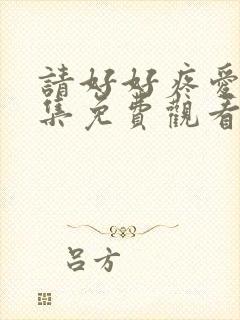 請好好疼愛
集免費觀看
呂方